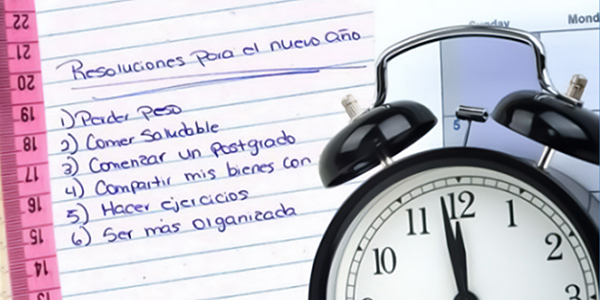 Resoluciones para el nuevo año
1) Perder Peso
2) Comer Saludable
3) Comenzar un Postgrado
4) Compartir mis bienes con
5) Hacer ejercicios
6) Ser más Organizada
22
21
20
19
18
17
16
15
14
13
Sunday
Mond
5
11
12
1
10
2
3